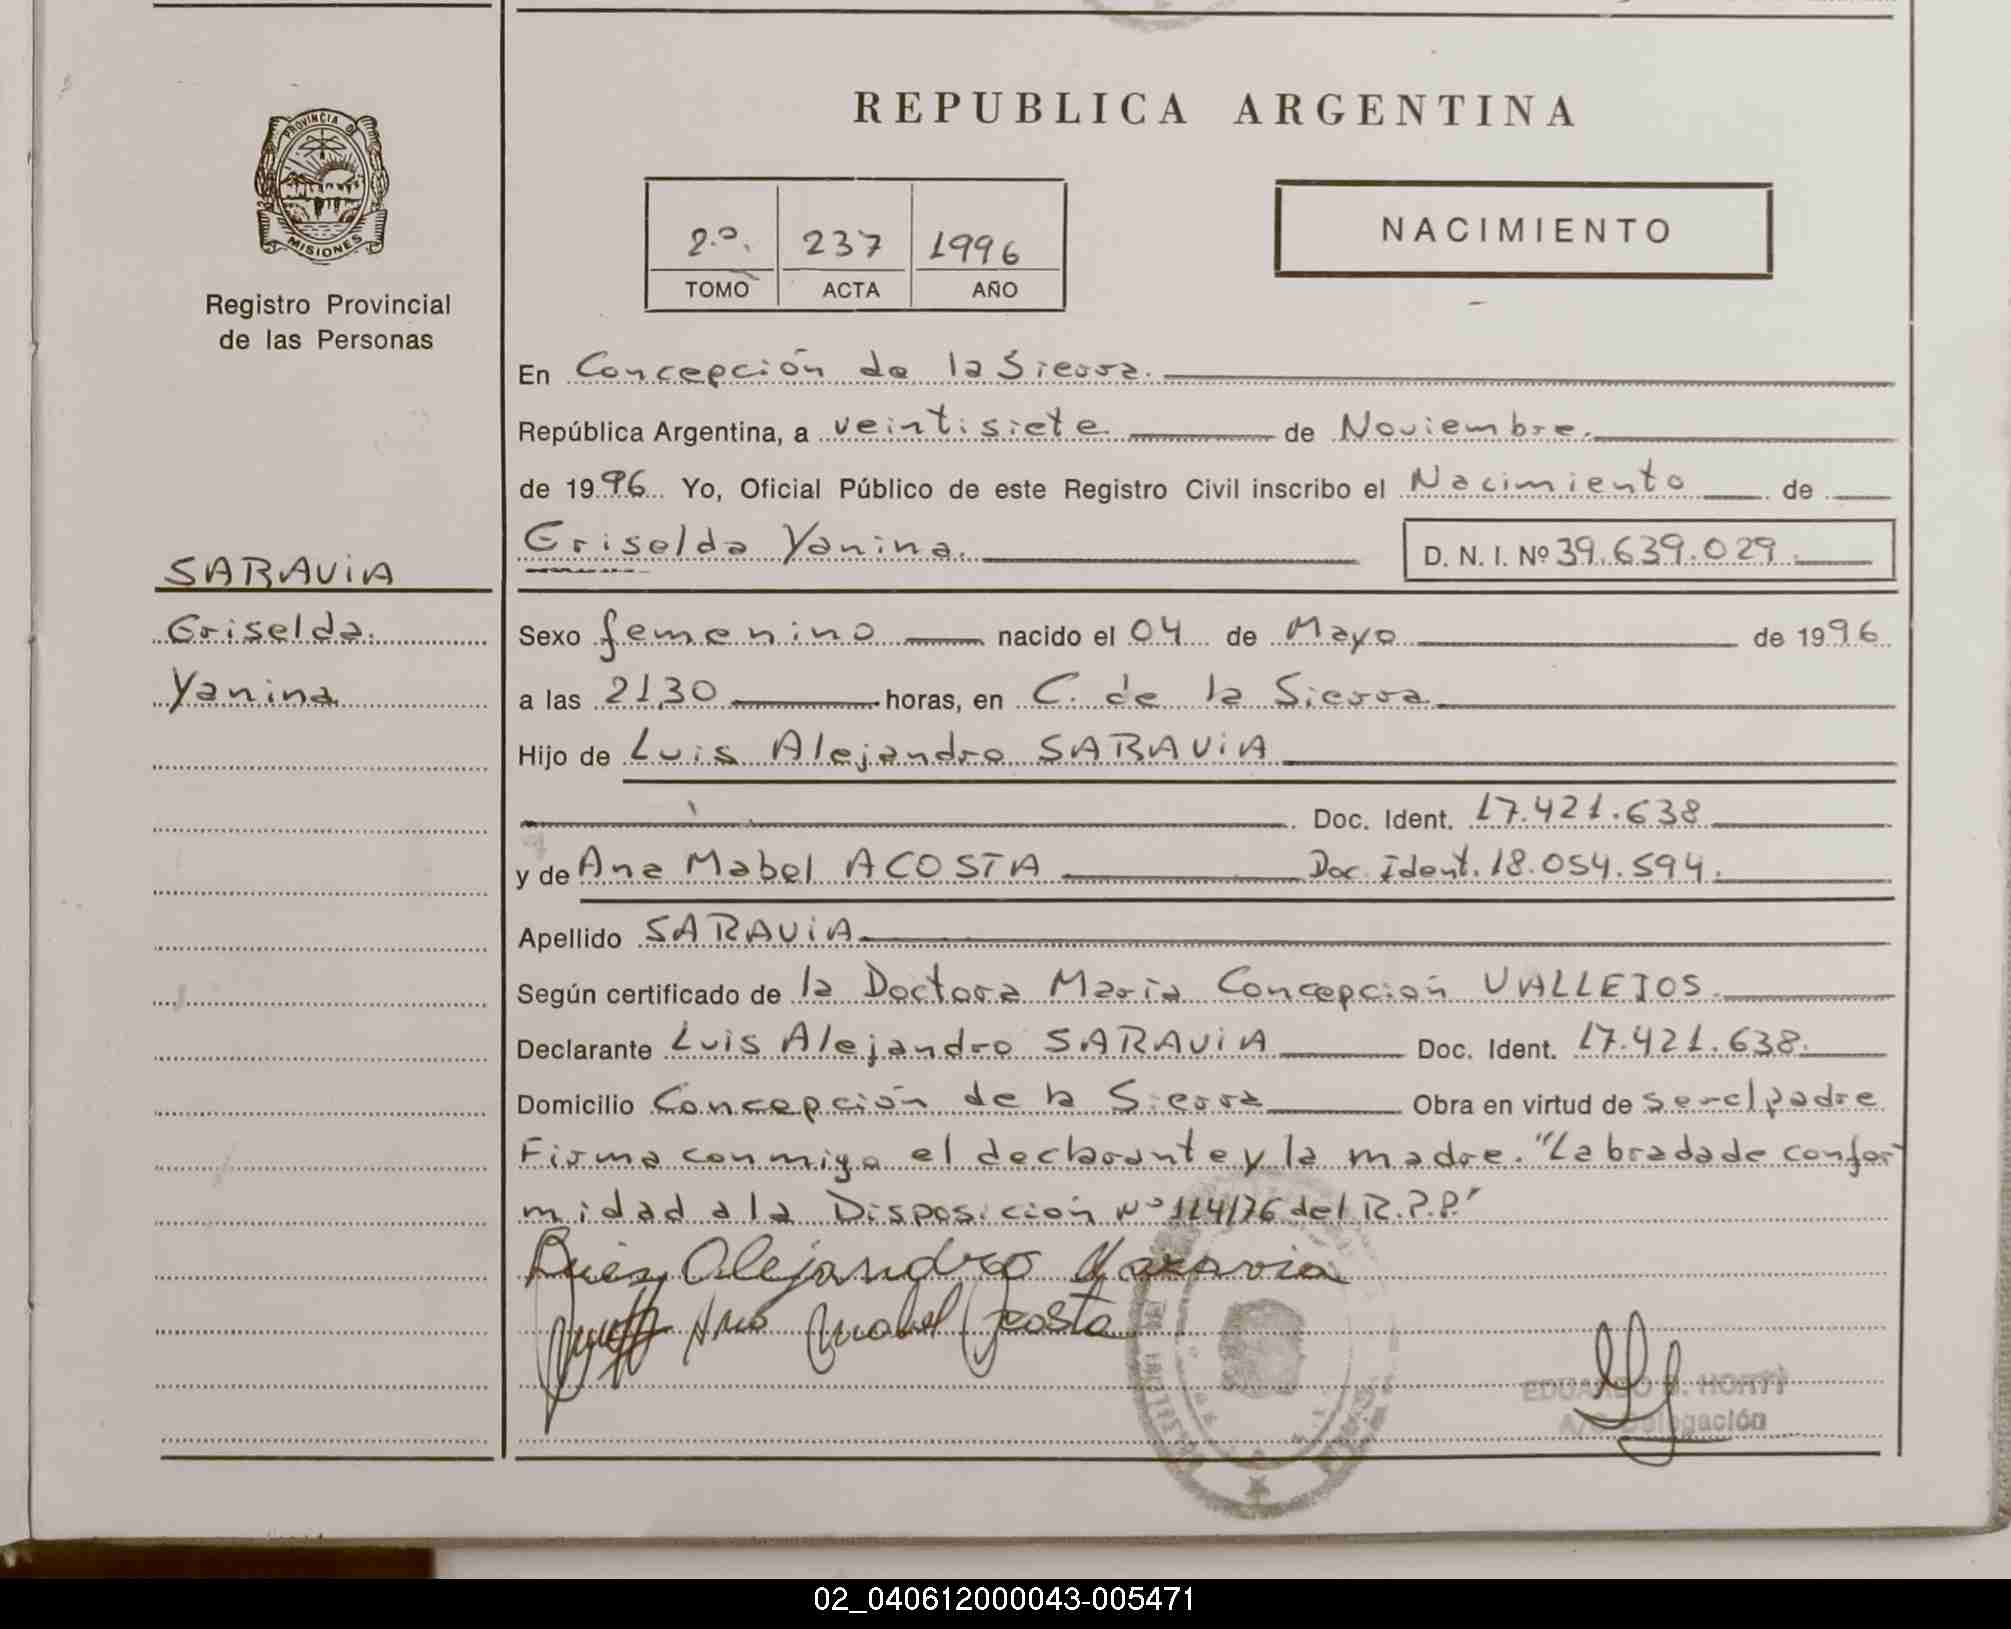 PROVINCIA DE
MISIONES
Registro Provincial
de las Personas
SARAVIA
Griselda
Yanina
REPUBLICA ARGENTINA
2.º. 237 1996
TOMO ACTA AÑO
NACIMIENTO
En Concepción de la Sierra.
República Argentina, a veintisiete de Noviembre.
de 1996 Yo, Oficial Público de este Registro Civil inscribo el Nacimiento de
Griselda Yanina. D. N. I. Nº 39.639.029.
Sexo femenino nacido el 04 de Mayo de 1996
a las 21,30 horas, en C. de la Sierra
Hijo de Luis Alejandro SARAVIA
Doc. Ident. 17.421.638
y de Ana Mabel ACOSTA Doc. Ident. 18.054.594.
Apellido SARAVIA
Según certificado de la Doctora María Concepción VALLEJOS.
Declarante Luis Alejandro SARAVIA Doc. Ident. 17.421.638.
Domicilio Concepción de la Sierra Obra en virtud de ser el padre
Firma conmigo el declarante y la madre. "Labrada de confor-
midad a la Disposición Nº 114/76 del R.P.P."
Luis Alejandro Saravia
Ana Mabel Acosta
EDUARDO HORTT
A/C Delegación
02_040612000043-005471